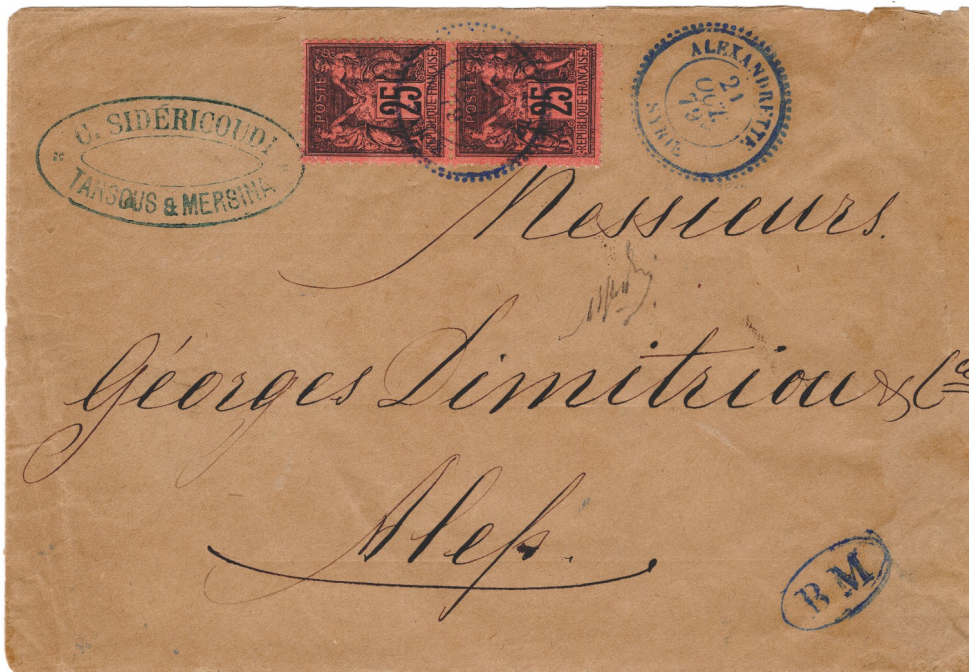 C. SIDÉRICOUDI
TARSOUS & MERSINA
POSTE 25 REPUBLIQUE FRANÇAISE
POSTE 25 REPUBLIQUE FRANÇAISE
ALEXANDRETTE
21
OCT
79
SYRIE
Messieurs.
Géorges Dimitriou & Cie
Alep.
BM